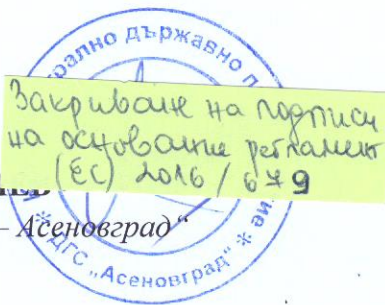 рално държавно п
Закриване на подписи
на основание регламент
(ЕС) 2016/679
ЛЕВ
– Асеновград“
* ДГС „Асеновград“ *
ие